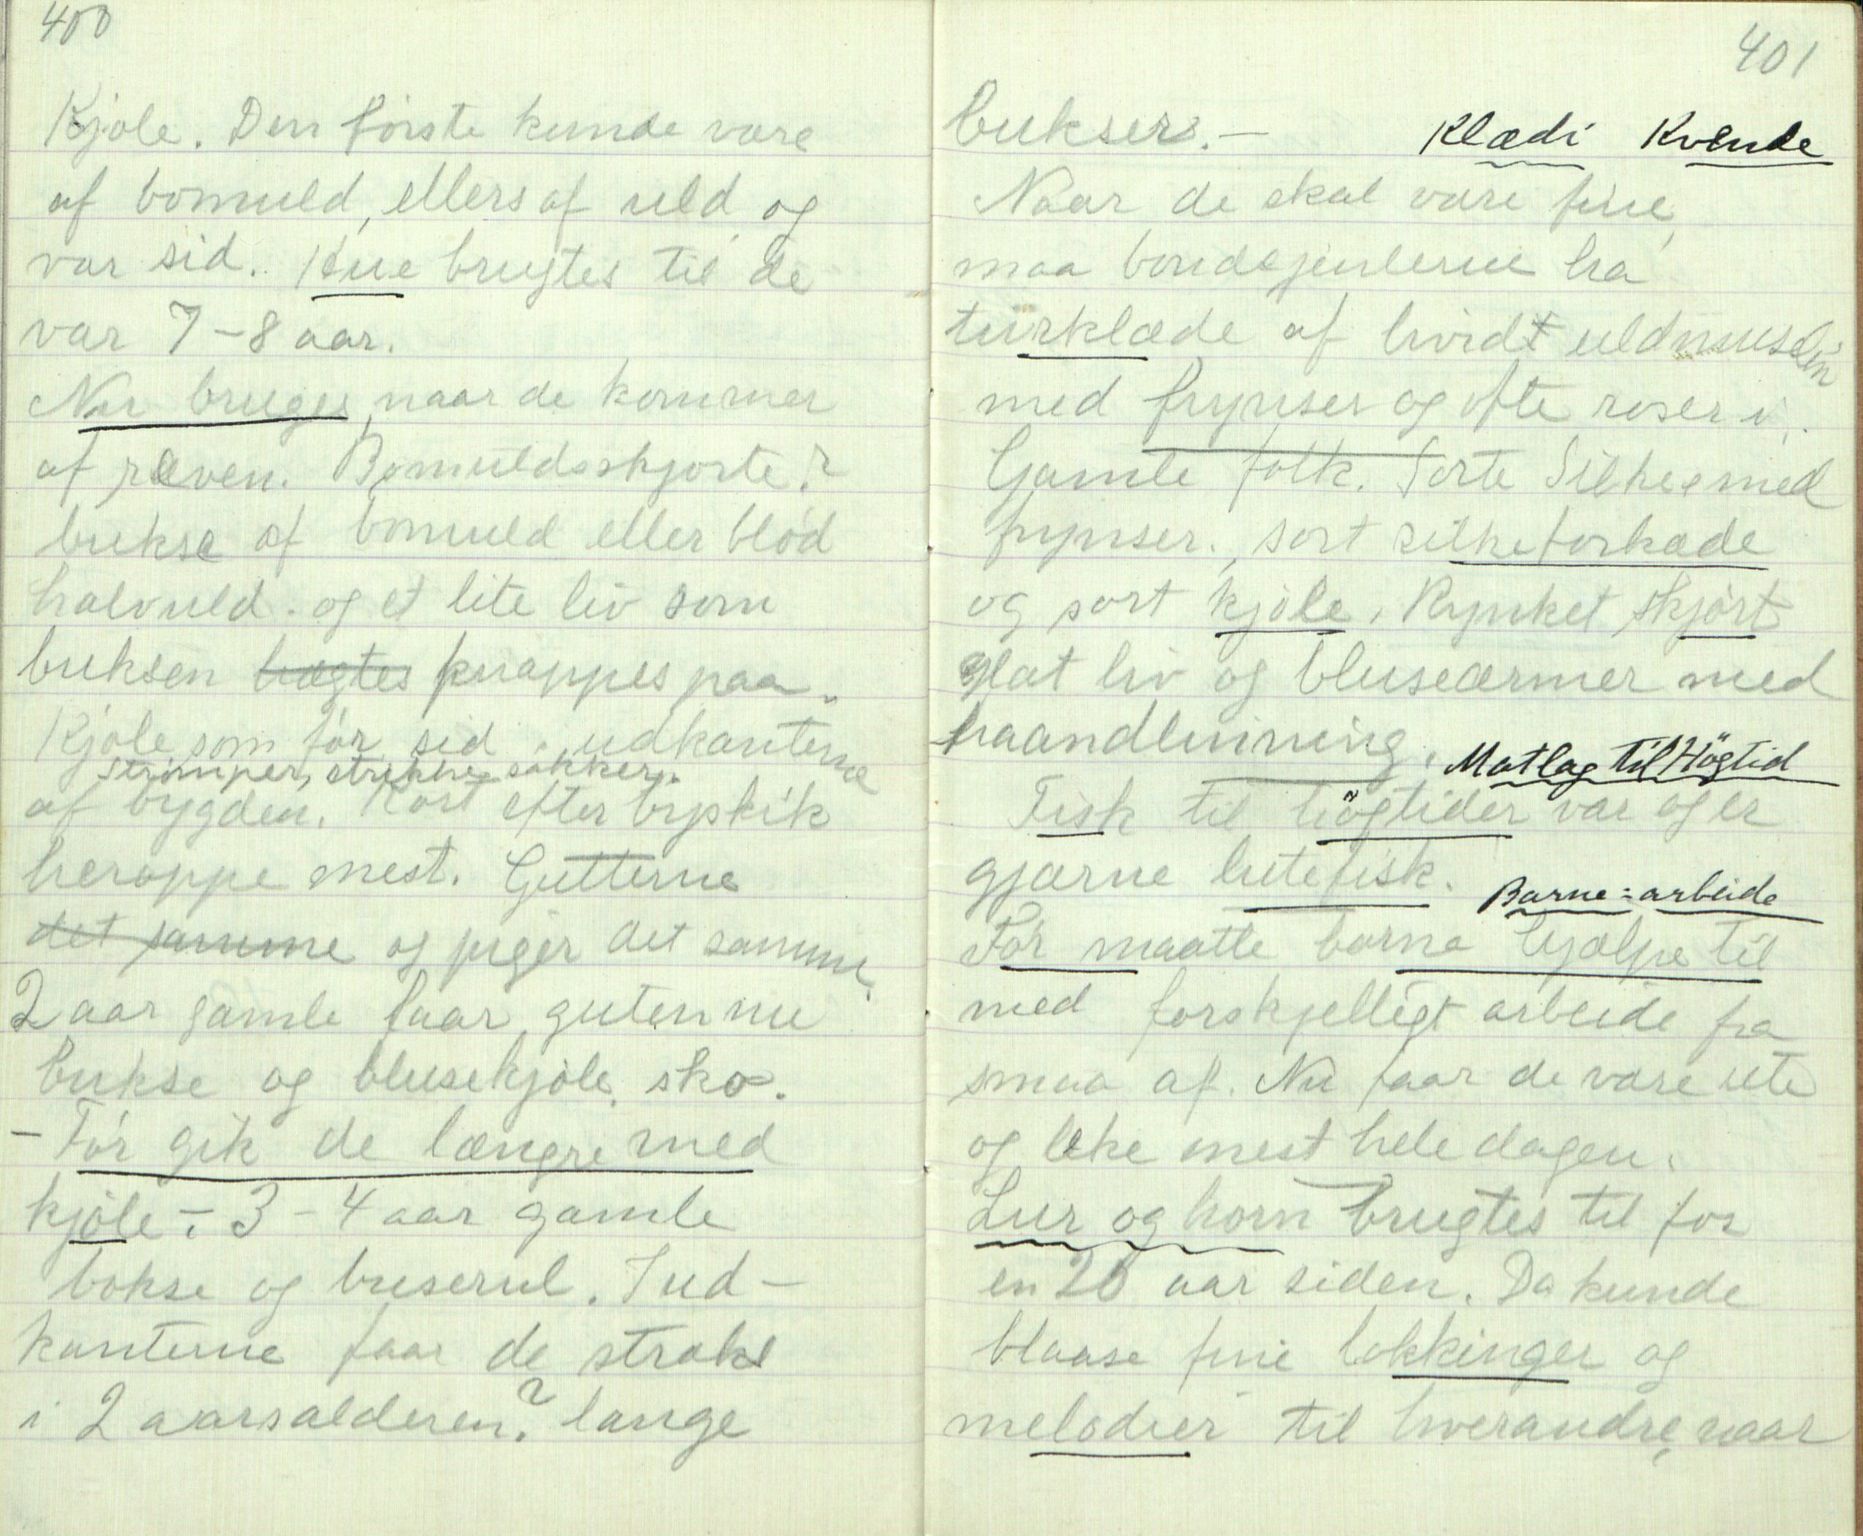 400
Kjole. Den første kunde være
af bomuld, ellers af uld og
var sid. Hue brugtes til de
var 7-8 aar.
Nu bruges naar de kommer
af ræven. Bomuldsskjorte?
bukse af bomuld eller blød
halvuld. og et lite liv som
buksen hægtes knappes paa.
Kjole som før sid. udkanterne
strømper, strikke sokker.
af bygden. Kort efter byskik
heroppe mest. Gutterne
det samme og piger det samme.
2 aar gamle faar guten nu
bukse og blusekjole. sko.
- Før gik de længre med
kjole - 3-4 aar gamle
bokse og buserul. I ud-
kanterne faar de straks
i 2 aarsalderen? lange
401
bukser.-
Klædi Kvende
Naar de skal være fine,
maa bondejenterne ha
turklæde af hvidt uldmuselin
med frynser og ofte roser i.
Gamle folk. Sorte Silke med
frynser., sort silkeforkæde
og sort kjole. Rynket skjørt
glat liv og bluseærmer med
haandlinning.
Matlag til Högtid
Fisk til högtider var og er
gjærne lutefisk.
Barne=arbeide
Før maatte barna hjælpe til
med forskjelligt arbeide fra
smaa af. Nu faar de være ute
og leke mest hele dagen.
Lur og horn brugtes til for
en 20 aar siden. Da kunde
blaase fine lokkinger og
melodier til hverandre, naar